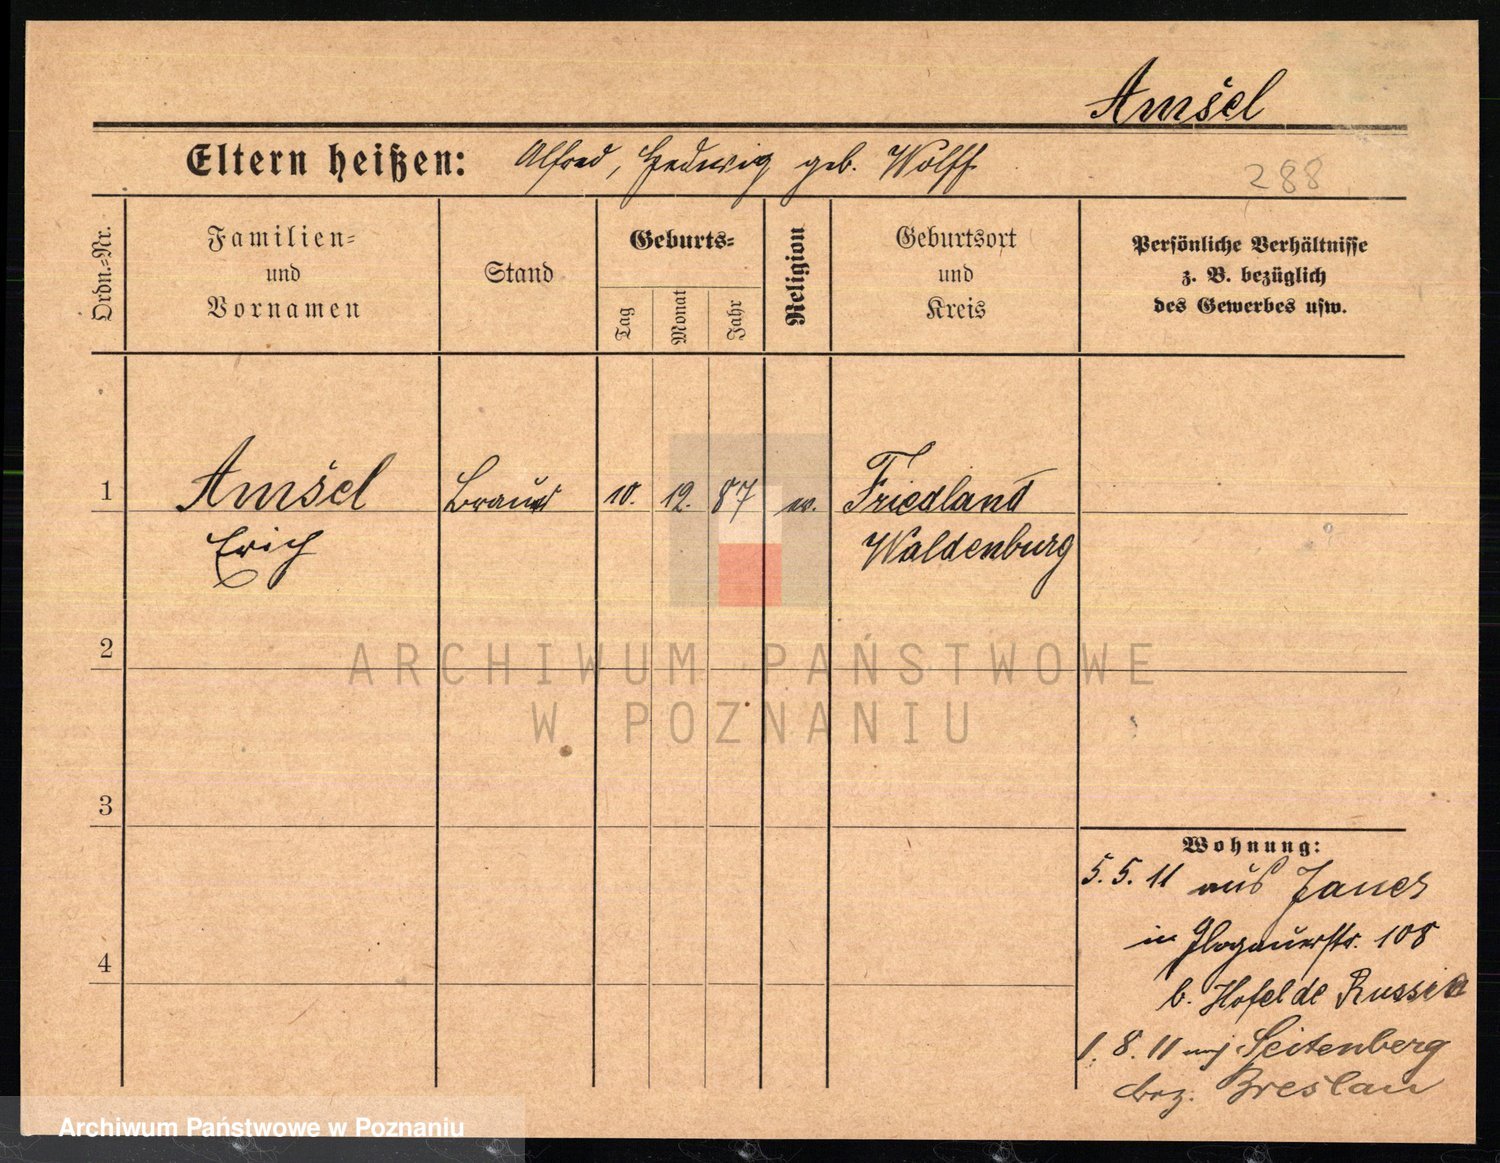 Amsel
Eltern heißen: Alfred, Hedwig geb. Wolff
288
Ordn.=Nr.
Familien=
und
Vornamen
Stand
Geburts=
Tag
Monat
Jahr
Religion
Geburtsort
und
Kreis
Persönliche Verhältnisse
z. B. bezüglich
des Gewerbes usw.
1 Amsel Brauer 10. 12. 87 ev. Friedland
Erich Waldenburg
2
ARCHIWUM PAŃSTWOWE
W POZNANIU
3
Wohnung:
5. 5. 11 aus Janer
in Glogauerstr. 108
4
b. Hofelde
1. 8. 11 Seitenberg
bez. Breslau
Archiwum Państwowe w Poznaniu